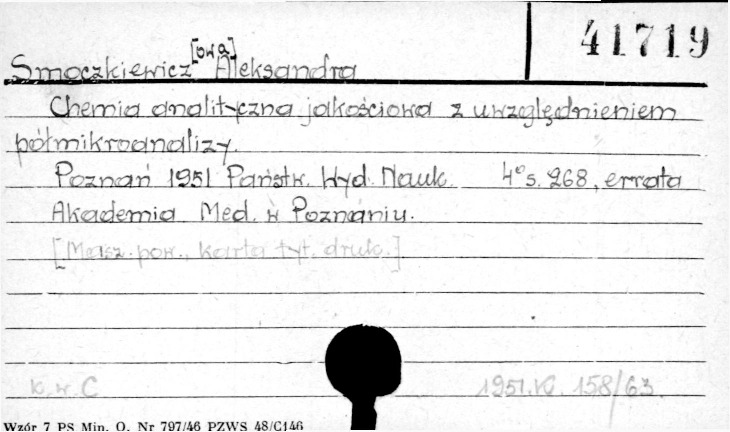 41719
Smoczkiewicz[owa] Aleksandra
Chemia analityczna jakościowa z uwzględnieniem
półmikroanalizy.
Poznań 1951 Państw. Wyd. Nauk. 4° s. 268, errata
Akademia Med. w Poznaniu.
[Masz. pow., karta tyt. druk.]
K. w C 1951.K. 158/63
Wzór 7 PS Min. O. Nr 797/46 PZWS 48/C146